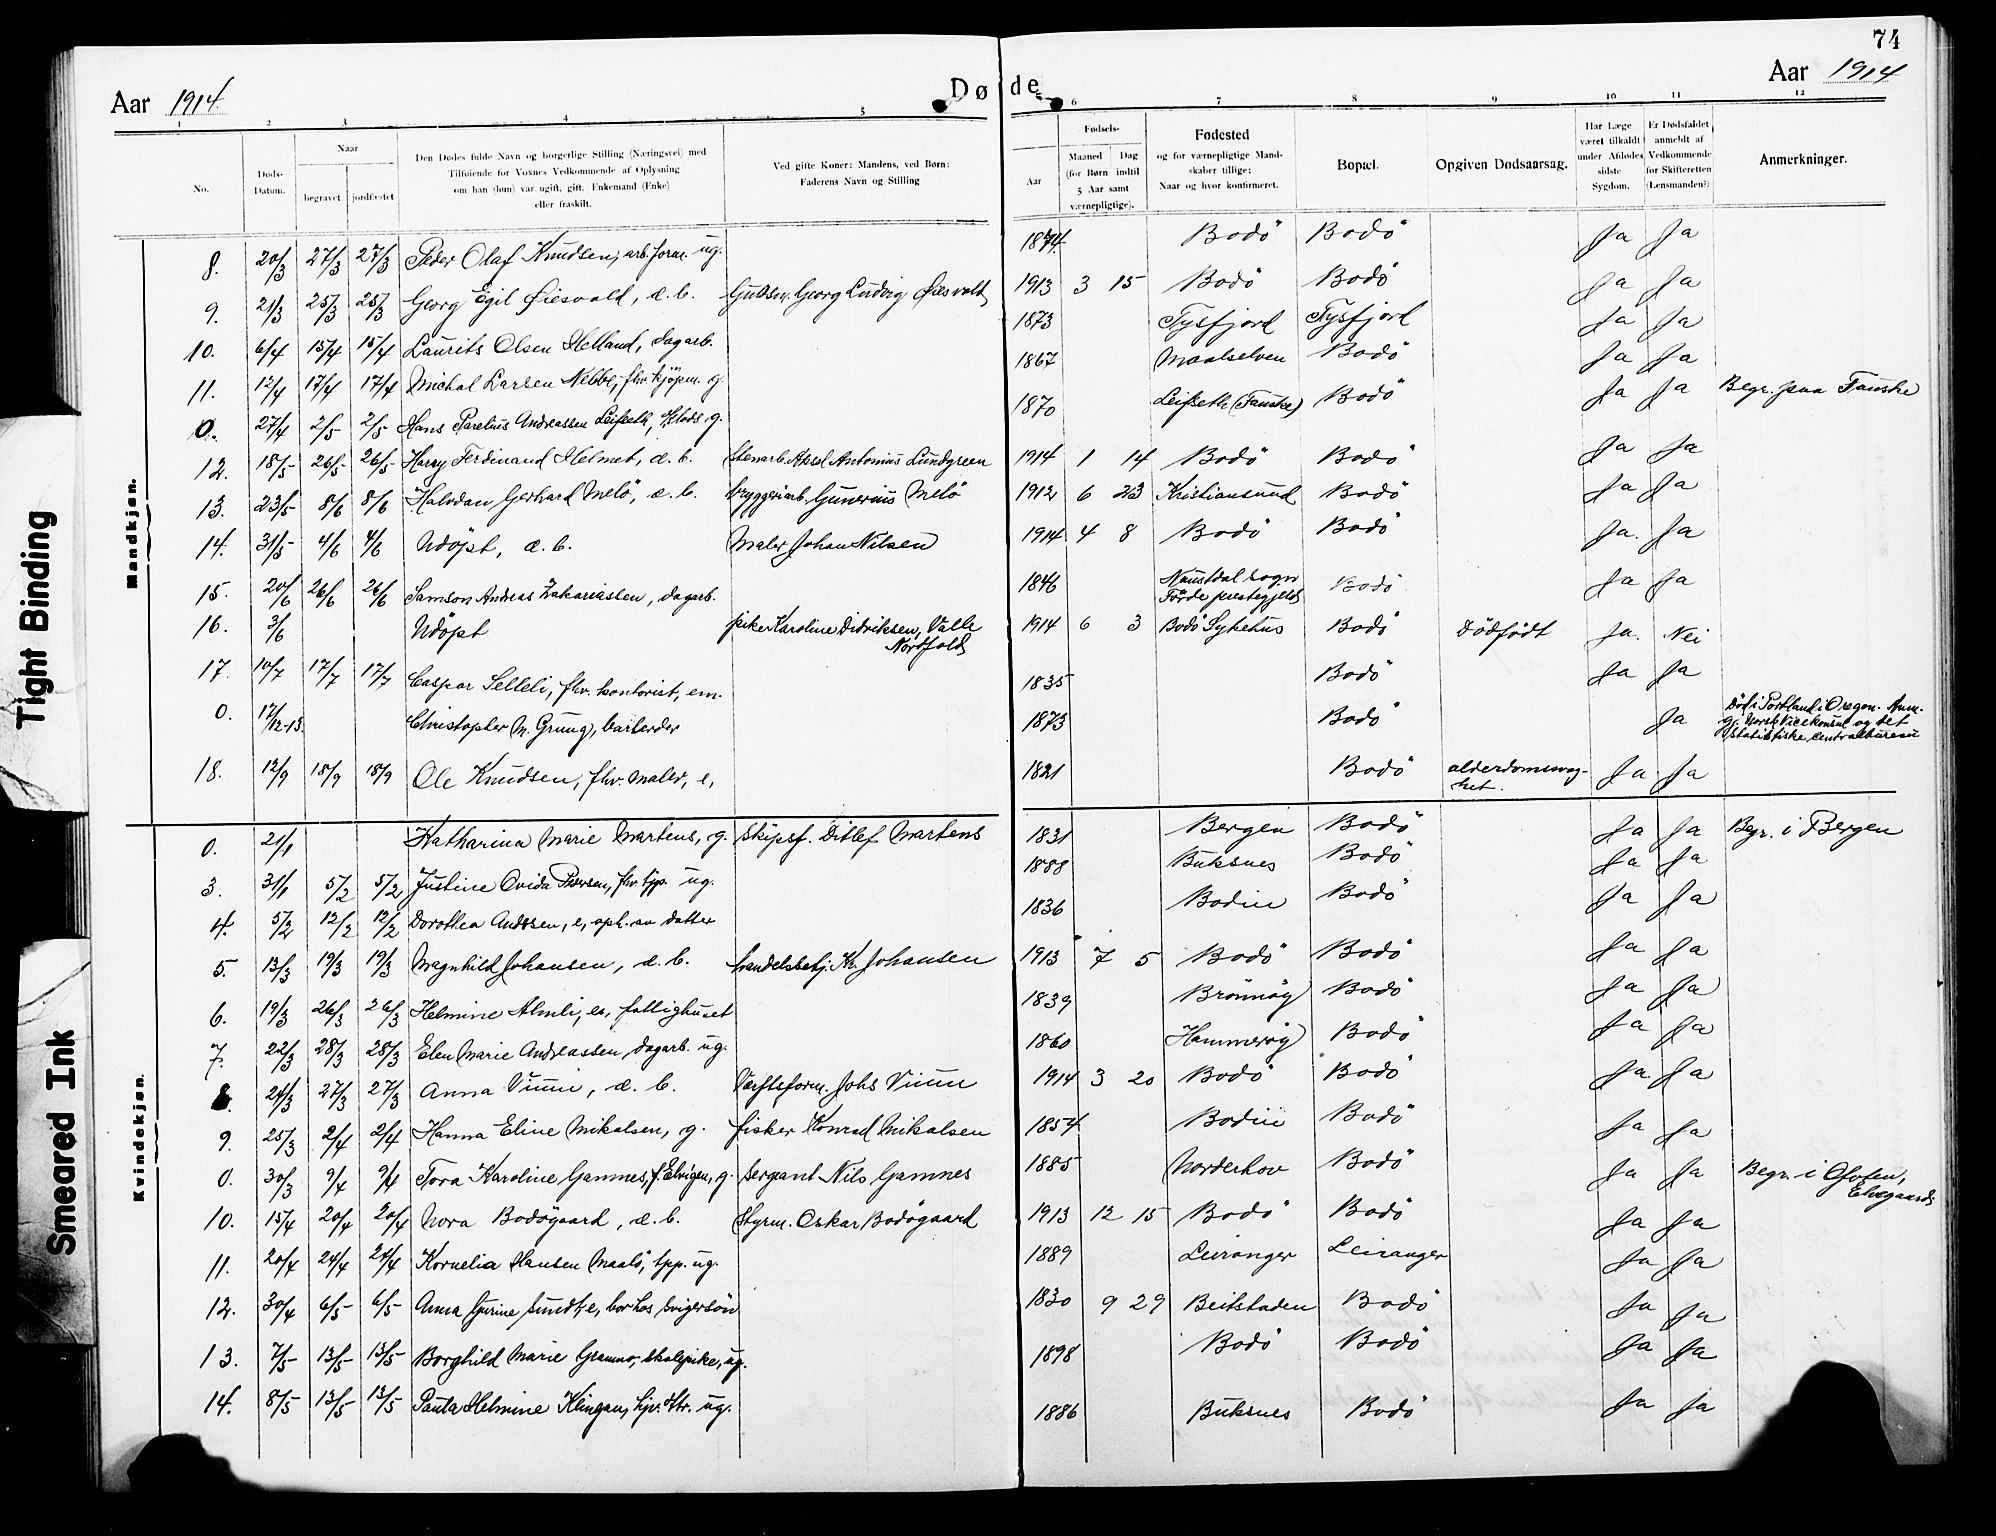 74
Aar 1914.
Døde
Aar 1914
1 2 3 4 5 6 7 8 9 10 11 12
No.
Døds-Datum.
Naar
begravet jordfæstet
Den Dødes fulde Navn og borgerlige Stilling (Næringsvei) med
Tilføiende for Voxnes Vedkommende af Oplysning
om han (hun) var ugift, gift, Enkemand (Enke)
eller fraskilt.
Ved gifte Koner: Mandens, ved Børn:
Faderens Navn og Stilling
Fødsels-
Aar
Maaned Dag
(for Børn indtil
5 Aar samt
værnepligtige).
Fødested
og for værnepligtige Mand-
skaber tillige:
Naar og hvor konfirmeret.
Bopæl.
Opgiven Dødsaarsag.
Har Læge
været tilkaldt
under Afdødes
sidste
Sygdom.
Er Dødsfaldet
anmeldt af
Vedkommende
for Skifteretten
(Lensmanden?)
Anmerkninger.
Mandkjøn.
8. 20/3 27/3 27/3 Peder Olaf Knudsen, arb.form. ug. 1874. Bodö Bodö Ja Ja
9. 21/3 25/3 25/3 Georg Egil Øiesvold, d. b. Gulsm. Georg Ludvig Øiesvold 1913 3 15 Bodö Bodö Ja Ja
10. 6/4 15/4 15/4 Laurits Olsen Helland, dagarb. 1873 Tysfjord Tysfjord Ja Ja
11. 12/4 17/4 17/4 Michal Larsen Nebbe, fhv. kjöpm. g. 1867 Maalselven Bodö Ja Ja
0. 27/4 2/5 2/5 Hans Parelius Andreassen Leifseth, g. 1870 Leifseth (Fauske) Bodö Ja Ja Begr. paa Fauske
12. 18/5 26/5 26/5 Harry Ferdinand Helmet, d. b. Stenarb. Aksel Antonius Lundgreen 1914 1 14 Bodö Bodö Ja Ja
13. 23/5 8/6 8/6 Halvdan Gerhard Melö, d. b. bryggeriarb. Gunerius Melö 1912 6 23 Kristiansund Bodö Ja Ja
14. 31/5 4/6 4/6 Udöpt, d. b. Maler Johan Nilsen 1914 4 8 Bodö Bodö Ja. Ja
15. 20/6 26/6 26/6 Samson Andreas Zakariassen, dagarb. 1846 Naustdal sogn
Förde prestegjeld Bodö Ja Ja
16. 3/6 Udöpt pike Karoline Didriksen, Valle
Nordfold 1914 6 3 Bodö Sykehus Bodö Dödfödt Ja. Nei
17. 10/7 17/7 17/7 Caspar Selleli, fhv. kontorist, em. 1835 Bodö Ja Ja
0. 17/12-13. Christopher M. Grung, bartender 1873 Bodö Ja Död i Portland i Oregon. Anm.
gj. Norsk Vicekonsul og det
statistiske centralbureau
18. 12/9 18/9 18/9 Ole Knudsen, fhv. maler, e, 1821 Bodö alderdomssvag-
het. Ja Ja
Kvindekjøn.
0. 21/1 Katharina Marie Martens, g. skipsf. Ditlef Martens 1831 Bergen Bodö Ja Ja Begr. i Bergen
3. 31/1 5/2 5/2 Justine Ovida Pedersen, fhv. tjp. ug. 1888 Buksnes Bodö Ja Ja
4. 5/2 12/2 12/2 Dorothea Andersen, e, oph. av datter 1836 Bodin Bodö Ja Ja
5. 13/3 19/3 19/3 Magnhild Johansen, d. b. handelsbetj. Kr. Johansen 1913 7 5 Bodö Bodö Ja Ja
6. 19/3 26/3 26/3 Helmine Almli, e, fattighuset 1839 Brönnöy Bodö Ja Ja
7. 22/3 28/3 28/3 Elen Marie Andreassen, dagarb. ug. 1860 Hammeröy Bodö Ja Ja
8. 24/3 27/3 27/3 Anna Vinje, d. b. Værftsform. Johs Vinje 1914 3 20 Bodö Bodö Ja. Ja
9. 25/3 2/4 2/4 Hanna Eline Mikalsen, g. fisker Konrad Mikalsen 1854 Bodin Bodö Ja Ja
0. 30/3 9/4 9/4 Tora Karoline Gamnes, f. Elvigen, g. sergeant Nils Gamnes 1885 Norderhov Bodö Ja Ja Begr. i Ofoten,
Elvegaard
10. 15/4 20/4 20/4 Nora Bodøgaard, d. b. Styrm. Oskar Bodøgaard 1913 12 15 Bodö Bodö Ja Ja
11. 20/4 24/4 24/4 Kornelia Hansen Maalö, tpp. ug. 1889 Leiranger Leiranger Ja Ja
12. 30/4 6/5 6/5 Anna Gurine Sundt, e, bor hos svigersön 1830 9 29 Beitstaden Bodö Ja Ja
13. 7/5 13/5 13/5 Borghild Marie Gramno, skolepike, ug. 1898 Bodö Bodö Ja Ja
14. 8/5 13/5 13/5 Paula Helmine Klingan, ug. 1886 Buksnes Bodö Ja Ja
Tight Binding
Smeared Ink